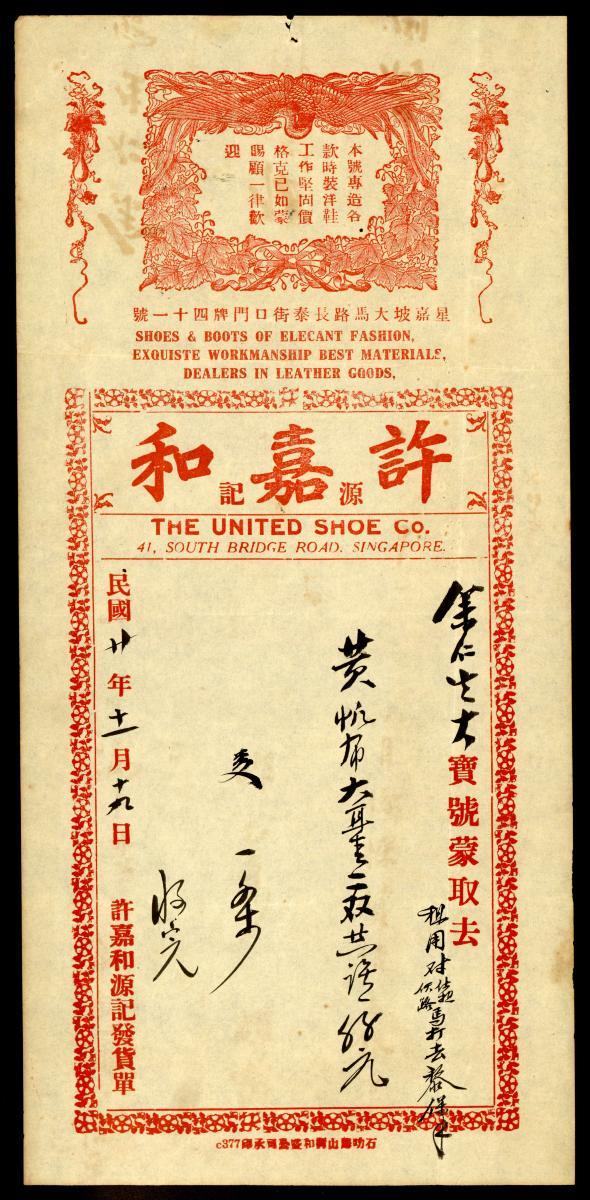 本號專造各
款時裝洋鞋
工作堅固價
格克已如蒙
賜顧一律歡
迎
星嘉坡大馬路長泰街口門牌四十一號
SHOES & BOOTS OF ELECANT FASHION,
EXQUISTE WORKMANSHIP BEST MATERIALS,
DEALERS IN LEATHER GOODS,
許嘉和
源記
THE UNITED SHOE Co.
41, SOUTH BRIDGE ROAD. SINGAPORE.
余仁生大寶號蒙取去
黃帆布大
一
民國廿年十一月十九日 許嘉和源記發貨單